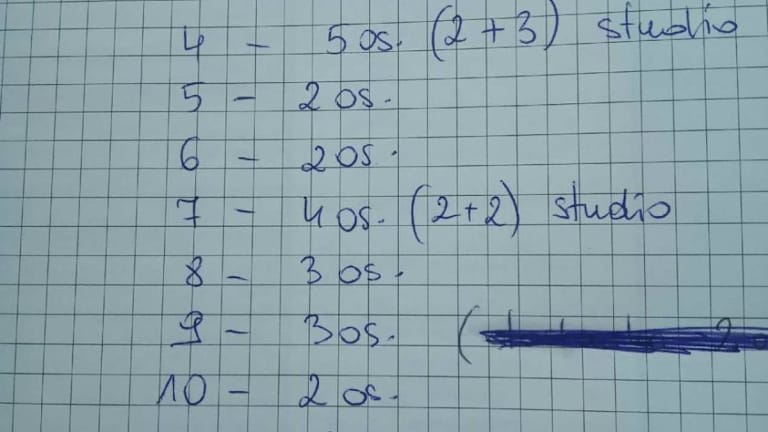 4 - 5 os. (2+3) studio
5 - 2 os.
6 - 2 os.
7 - 4 os. (2+2) studio
8 - 3 os.
9 - 3 os. (
10 - 2 os.